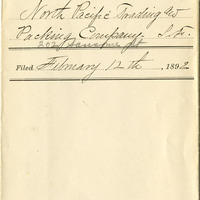 North Pacific Trading &
Packing Company S.F.
202 Sansome St
Filed February 12th, 1892